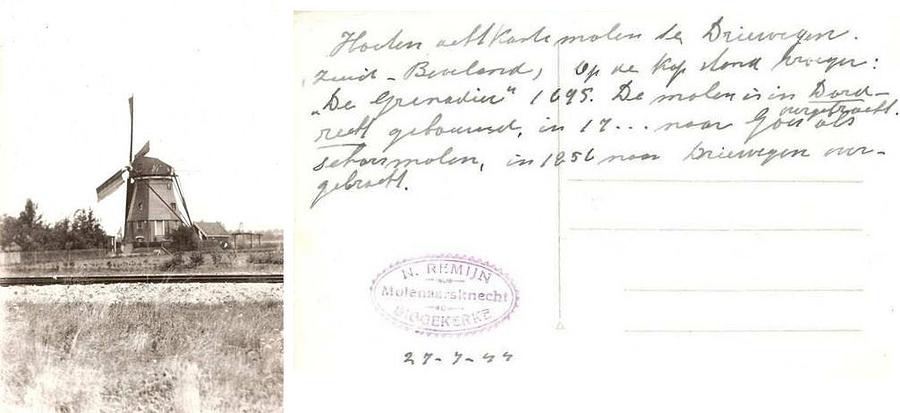 Houten achtkante molen te Driewegen.
Zuid-Beveland, Op de Kap stond vroeger:
„De Grenadier" 1695. De molen is in Dord-
recht gebouwd, in 17... naar Goes overgebracht als
schorsmolen, in 1856 naar Driewegen over-
gebracht.
N. REMIJN
Molenaarsknecht
BIGGEKERKE
27-7-44